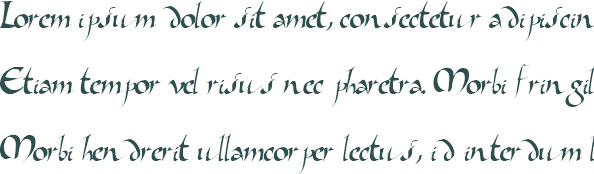 Lorem ipsum dolor sit amet, consectetur adipiscin
Etiam tempor vel risus nec pharetra. Morbi fringil
Morbi hendrerit ullamcorper lectus, id interdum l